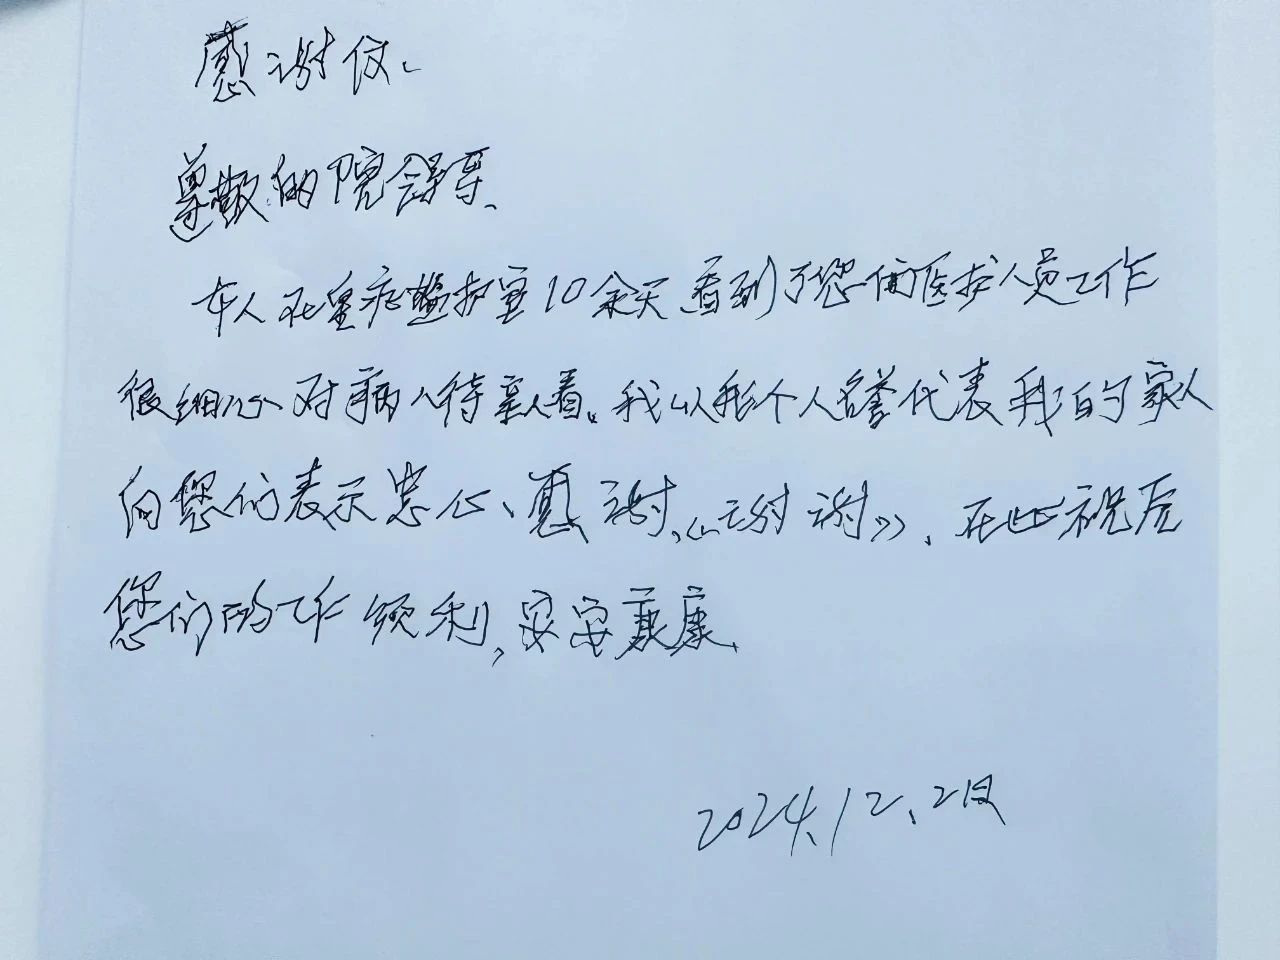 感谢信、
尊敬的院领导、
本人在重症监护室10余天看到了您们医护人员工作
很细心对病人待亲人看。我以我个人名誉代表我的家人
向您们表示忠心、感谢、《谢谢》、在此祝
您们的工作顺利,安安康康、
2024、12、2日